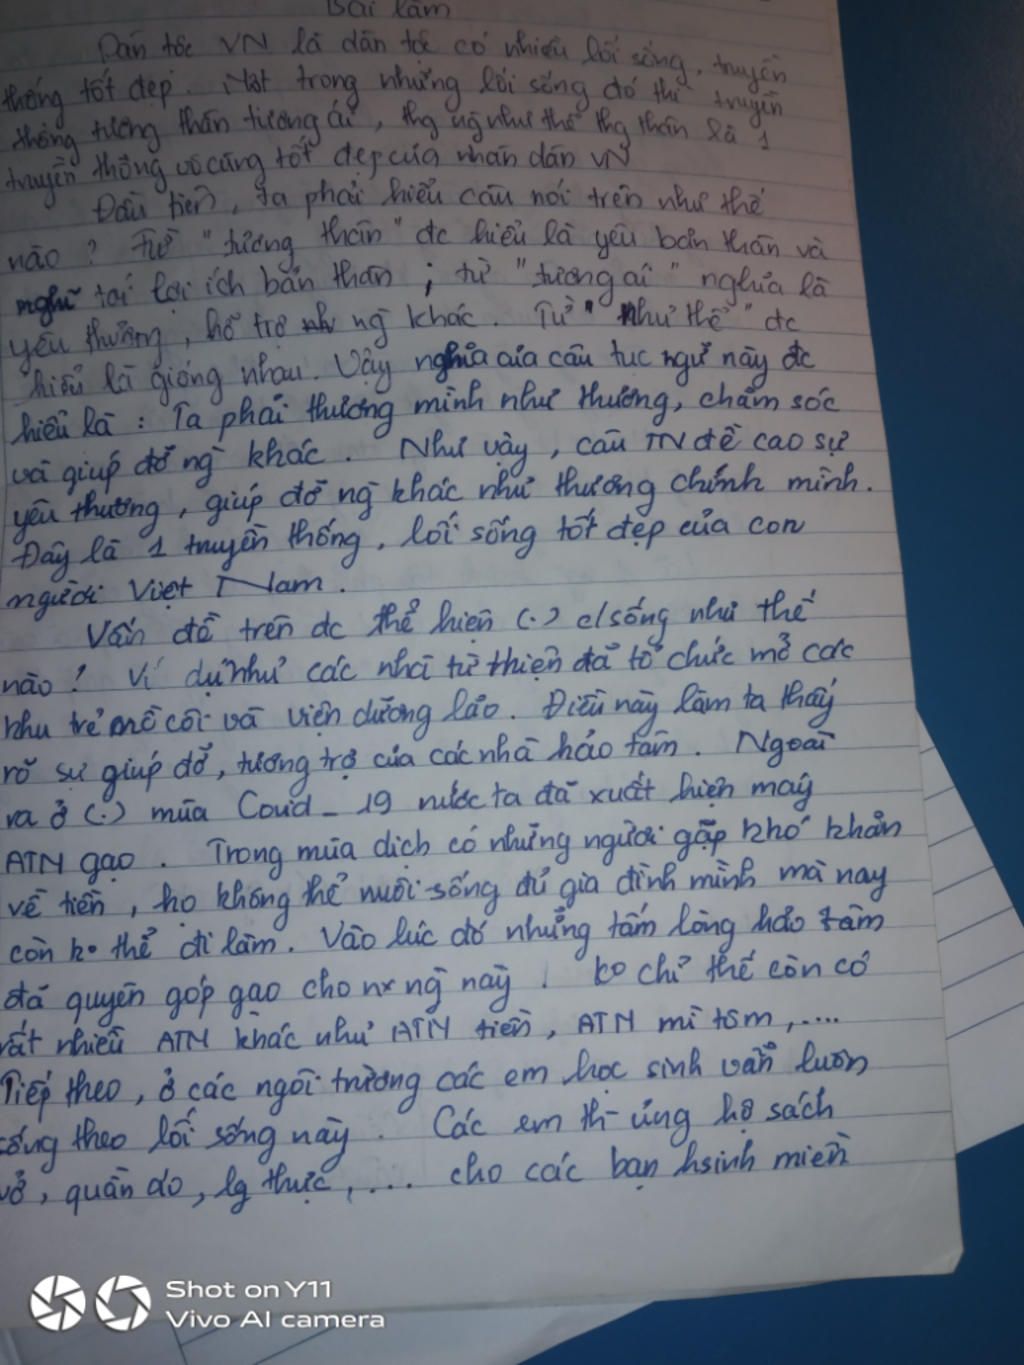 Bài làm
Dân tộc VN là dân tộc có nhiều lối sống, truyền
thống tốt đẹp. Một trong những lối sống đó thì truyền
thống tương thân tương ái, thg ng như thể thg thân là 1
truyền thống vô cùng tốt đẹp của nhân dân VN
Đầu tiên, ta phải hiểu câu nói trên như thế
nào? Từ "tương thân" đc hiểu là yêu bản thân và
nghĩ tới lợi ích bản thân; từ "tương ái" nghĩa là
yêu thương, hỗ trợ ng khác. Từ "như thể" đc
hiểu là giống nhau. Vậy nghĩa của câu tục ngữ này đc
hiểu là: Ta phải thương mình như thương, chăm sóc
và giúp đỡ ng khác. Như vậy, câu TN đề cao sự
yêu thương, giúp đỡ ng khác như thương chính mình.
Đây là 1 truyền thống, lối sống tốt đẹp của con
người Việt Nam.
Vấn đề trên đc thể hiện (.) c/sống như thế
nào! Ví dụ như các nhà từ thiện đã tổ chức mở các
khu trẻ mồ côi và viện dưỡng lão. Điều này làm ta thấy
rõ sự giúp đỡ, tương trợ của các nhà hảo tâm. Ngoài
ra ở (.) mùa Covid_19 nước ta đã xuất hiện máy
ATN gạo. Trong mùa dịch có những người gặp khó khăn
về tiền, họ không thể nuôi sống đủ gia đình mình mà nay
còn ko thể đi làm. Vào lúc đó những tấm lòng hảo tâm
đã quyên góp gạo cho nx ng này! ko chỉ thế còn có
rất nhiều ATN khác như ATN tiền, ATN mì tôm,....
Tiếp theo, ở các ngôi trường các em học sinh vẫn luôn
sống theo lối sống này. Các em th- ủng hộ sách
vở, quần áo, lg thực,... cho các bạn hsinh miền
Shot on Y11
Vivo AI camera